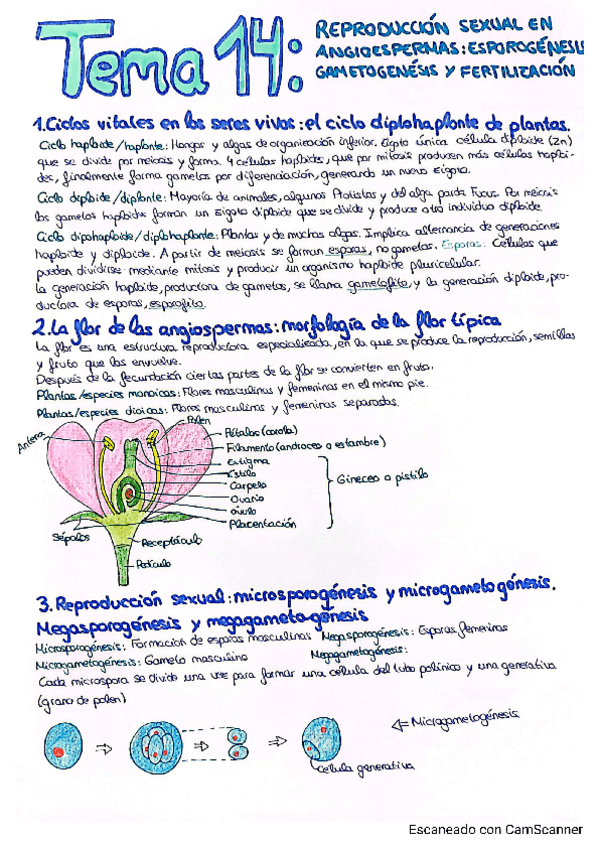 Tema 14:
REPRODUCCIÓN SEXUAL EN
ANGIOESPERMAS: ESPOROGÉNESIS
GAMETOGENÉSIS Y FERTILIZACIÓN
1. Ciclos vitales en los seres vivos: el ciclo diplohaplonte de plantas.
Ciclo haploide/haplonte: Hongos y algas de organización inferior. Cigoto única célula diploide (2n)
que se divide por meiosis y forma 4 células haploides, que por mitosis producen más células haploi-
des, finalmente forma gametos por diferenciación, generando un nuevo cigoto.
Ciclo diploide/diplonte: Mayoría de animales, algunos Protistas y del alga parda Fucus. Por meiosis
los gametos haploides forman un zigoto diploide que se divide y produce otro individuo diploide.
Ciclo dipohaploide/diplohaplonte: Plantas y de muchas algas. Implica alternancia de generaciones
haploide y diploide. A partir de meiosis se forman esporas, no gametos. Esporas: Células que
pueden dividirse mediante mitosis y producir un organismo haploide pluricelular.
La generación haploide, productora de gametos, se llama gametofito, y la generación diploide, pro-
ductora de esporas, esporofito.
2. La flor de las angiospermas: morfología de la flor típica
La flor es una estructura reproductora especializada, en la que se produce la reproducción, semillas
y fruto que las envuelve.
Después de la fecundación ciertas partes de la flor se convierten en fruto.
Plantas/especies monoicas: Flores masculinas y femeninas en el mismo pie.
Plantas/especies dioicas: Flores masculinas y femeninas separadas.
Polen
Antena
Pétalos (corola)
Filamento (androceo o estambre)
Estigma
Estilo
Carpelo
Ovario
óvulo
Placentación
Gineceo o pistilo
Sépalos
Receptáculo
Pedículo
3. Reproducción sexual: microsporogénesis y microgametogénesis.
Megasporogénesis y megagametogénesis
Microsporogénesis: Formación de esporas masculinas Megasporogénesis: Esporas femeninas
Microgametogénesis: Gameto masculino Megagametogénesis:
Cada microspora se divide una vez para formar una célula del tubo polínico y una generativa
(grano de polen)
Microgametogénesis
Célula generativa
Escaneado con CamScanner